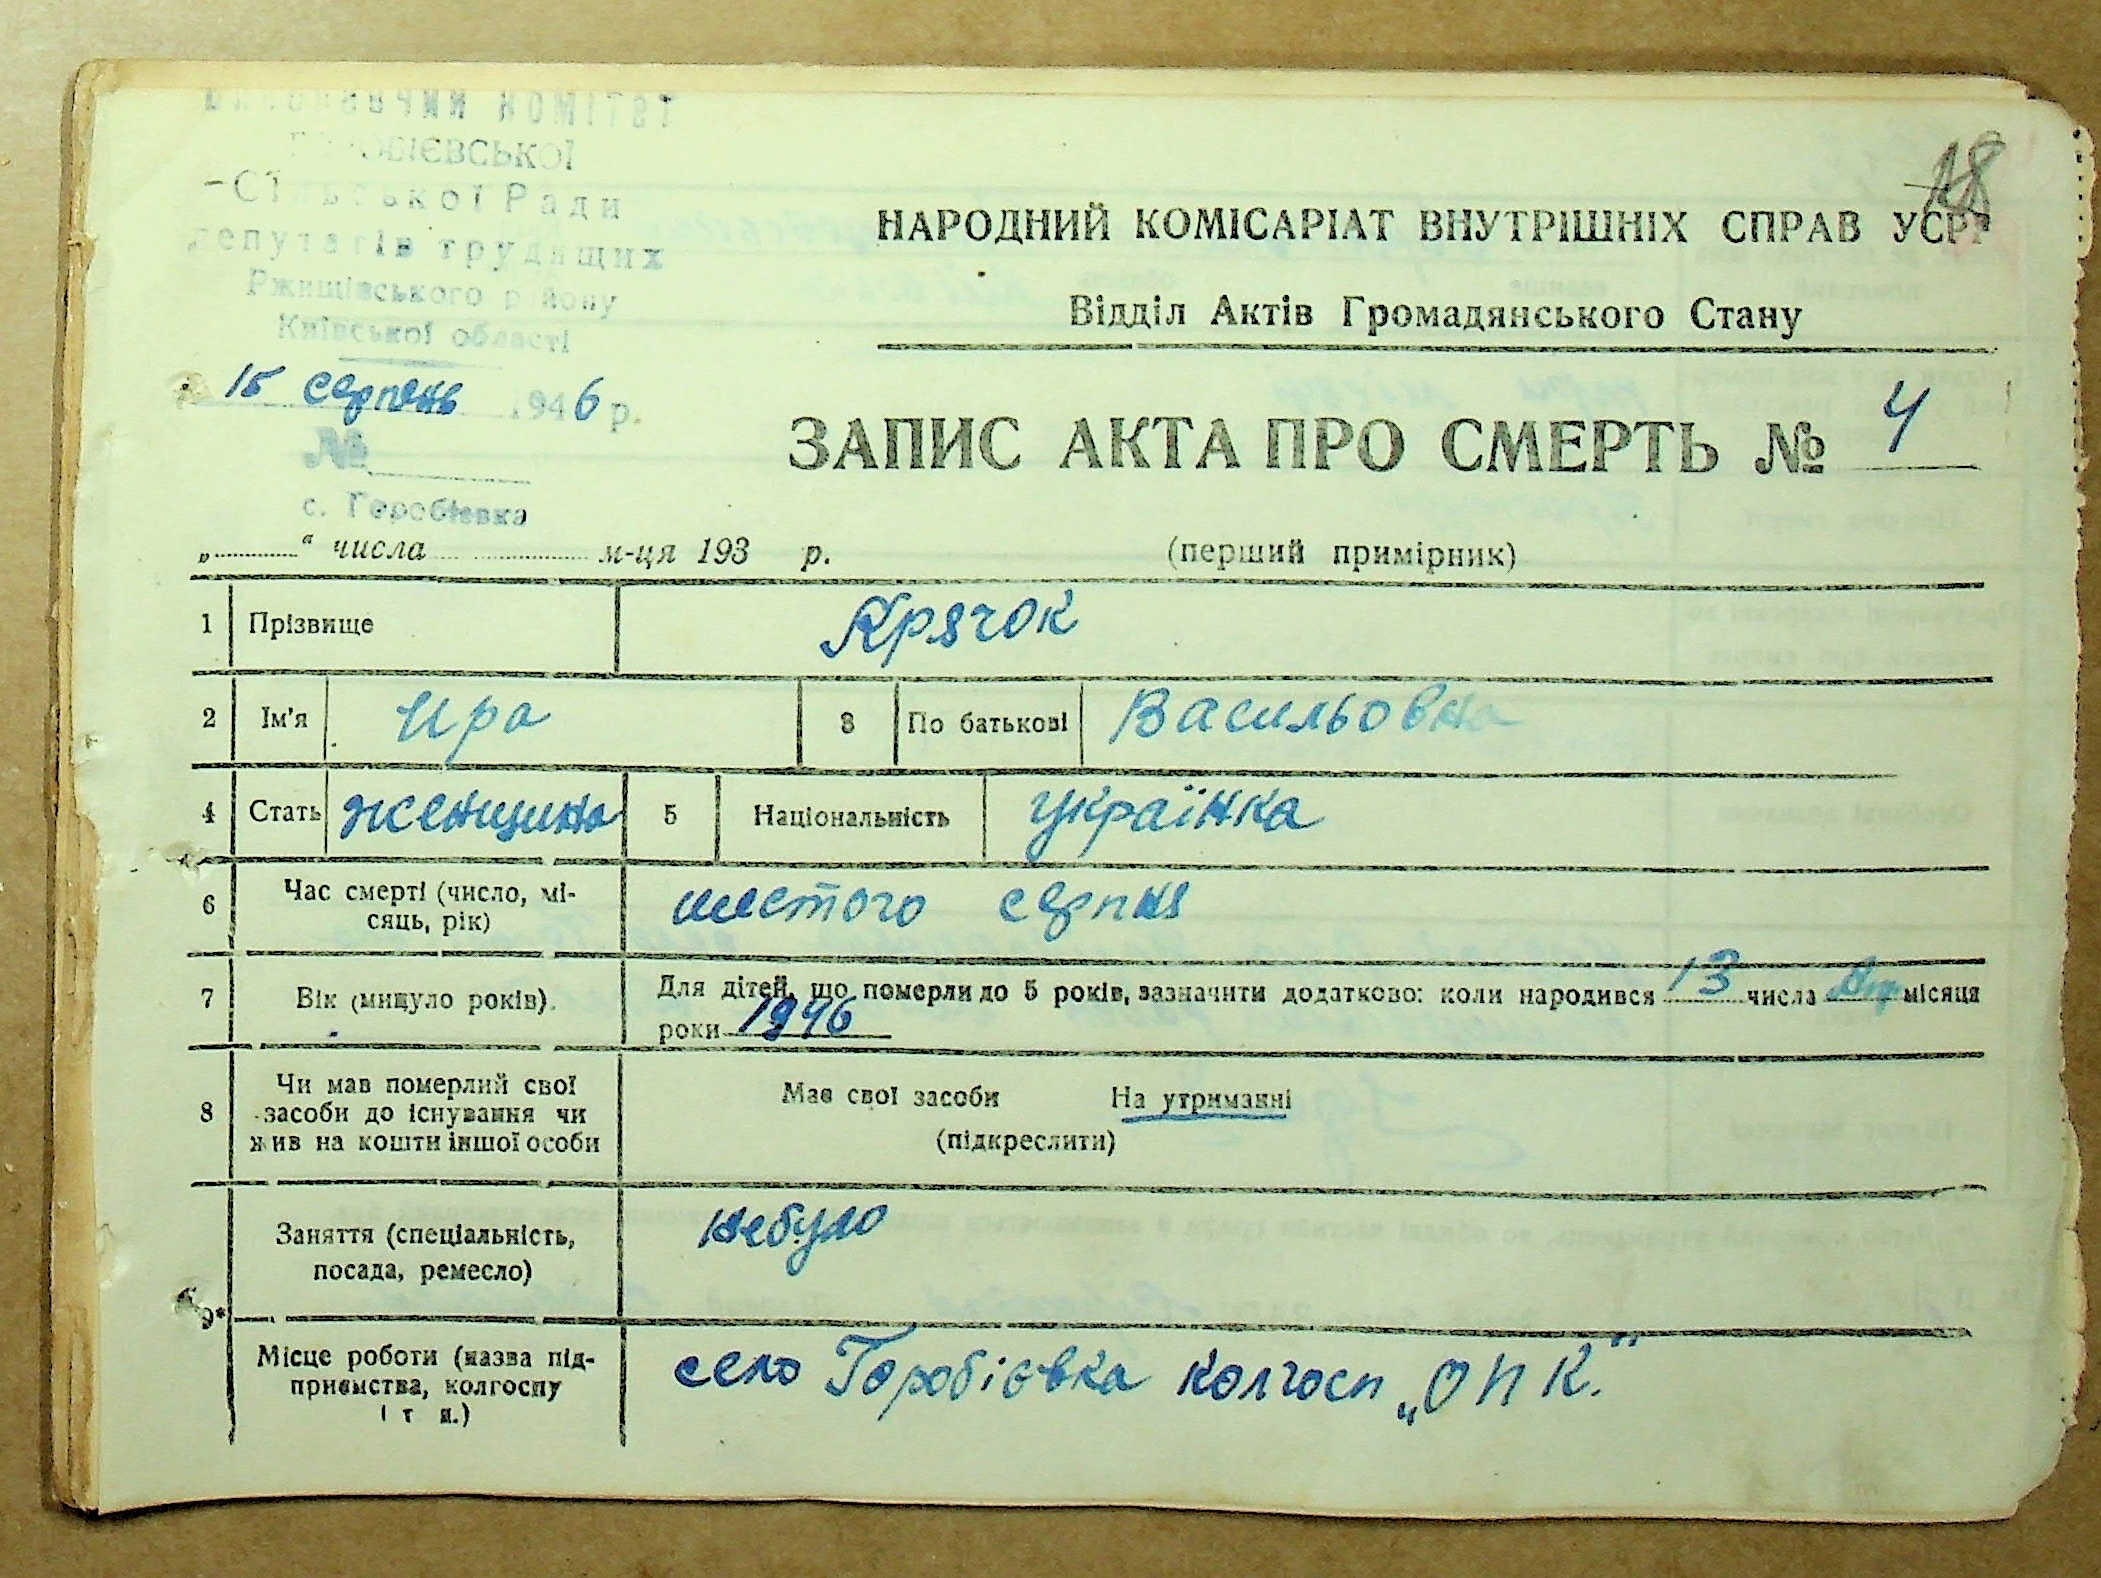 ВИКОНАВЧИЙ КОМІТЕТ
Сільської Ради
депутатів трудящих
Ржищівського району
Київської області
15 серпень 1946 р.
№
с. Горобіевка
18
НАРОДНИЙ КОМІСАРІАТ ВНУТРІШНІХ СПРАВ УСРР
Відділ Актів Громадянського Стану
ЗАПИС АКТА ПРО СМЕРТЬ № 4
„ “ числа м-ця 193 р. (перший примірник)
1 Прізвище Крячок
2 Ім'я Ира 3 По батькові Васильовна
4 Стать женщина 5 Національність українка
6 Час смерті (число, мі-
сяць, рік) шестого серпня
7 Вік (минуло років). Для дітей, що померли до 5 років, зазначити додатково: коли народився 13 числа місяця
роки 1946
8 Чи мав померлий свої
засоби до існування чи
жив на кошти іншої особи
Має свої засоби На утриманні
(підкреслити)
9* Заняття (спеціальність,
посада, ремесло) небуло
Місце роботи (назва під-
приємства, колгоспу
і т п.) село Горобіевка колгосп „ОПК."